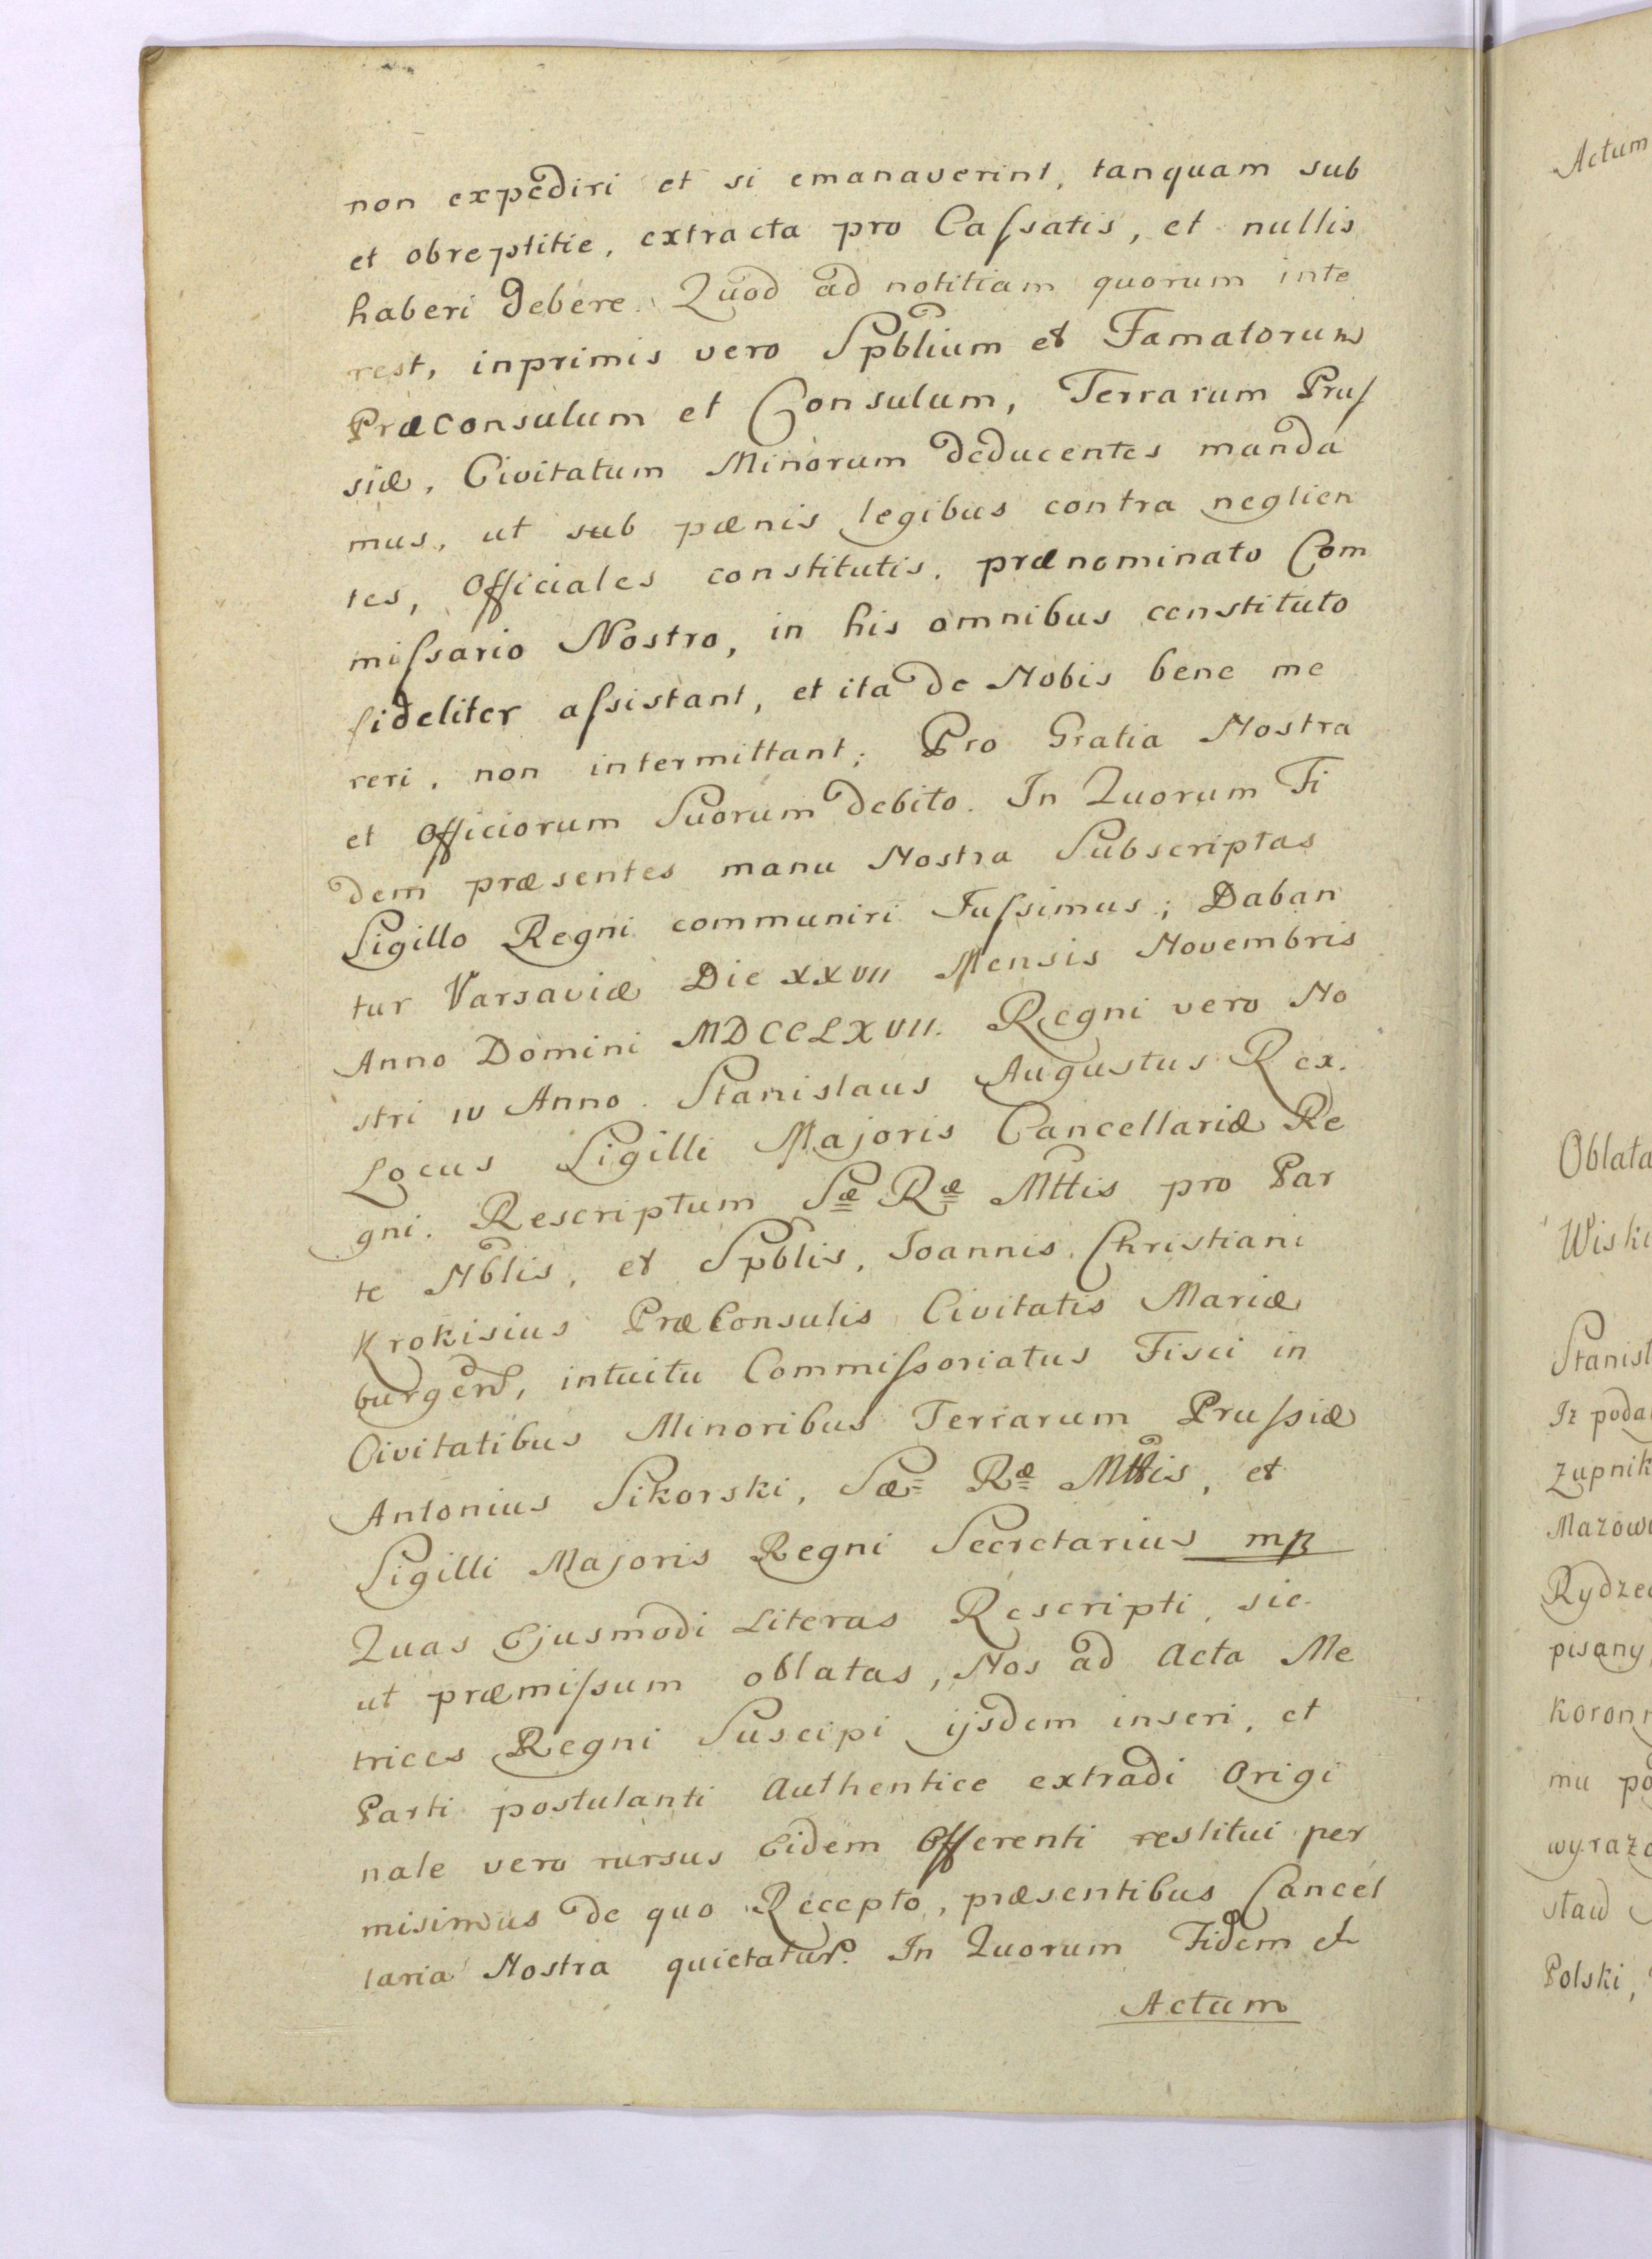 non expediri et si emanaverint, tanquam sub
et obreptitie, extracta pro Caſsatis, et nullis
haberi debere. Quod ad notitiam quorum inte
rest, inprimis vero Spblium et Famatorum
Præconsulum et Consulum, Terrarum Pruſ
siæ, Civitatum Minorum deducentes manda
mus, ut sub pænis legibus contra neglien
tes, Officiales constitutis, prænominato Com
miſsario Nostro, in his omnibus constituto
fideliter aſsistant, et ita de Nobis bene me
reri, non intermittant; Pro Gratia Nostra
et Officiorum Suorum debito. In Quorum Fi
dem præsentes manu Nostra Subscriptas
Sigillo Regni communiri Juſsimus; Daban
tur Varsaviæ Die XXVII Mensis Novembris
Anno Domini MDCCLXVII. Regni vero No
stri IV Anno. Stanislaus Augustus Rex.
Locus Sigilli Majoris Cancellariæ Re
gni. Rescriptum Sæ Ræ Mttis pro Par
te Nblis, et Spblis, Joannis Christiani
Krokisius PræConsulis Civitatis Mariæ
burgen, intuitu Commiſsoriatus Fisci in
Civitatibus Minoribus Terrarum Pruſsiæ
Antonius Sikorski, Sæ Ræ Mttis, et
Sigilli Majoris Regni Secretarius mp
Quas Ejusmodi Literas Rescripti, sic
ut præmiſsum oblatas, Nos ad Acta Me
trices Regni Suscipi ijsdem inseri, et
Parti postulanti Authentice extradi Origi
nale vero rursus Eidem Offerenti restitui per
misimus de quo Recepto, præsentibus Cancel
laria Nostra quietatur. In Quorum Fidem et
Actum
Actum
Oblata
Wiski
Stanisł
Iż poda
Zupnik
Mazow
Rydze
pisany
koron
mu po
wyraz
staw
Polski,